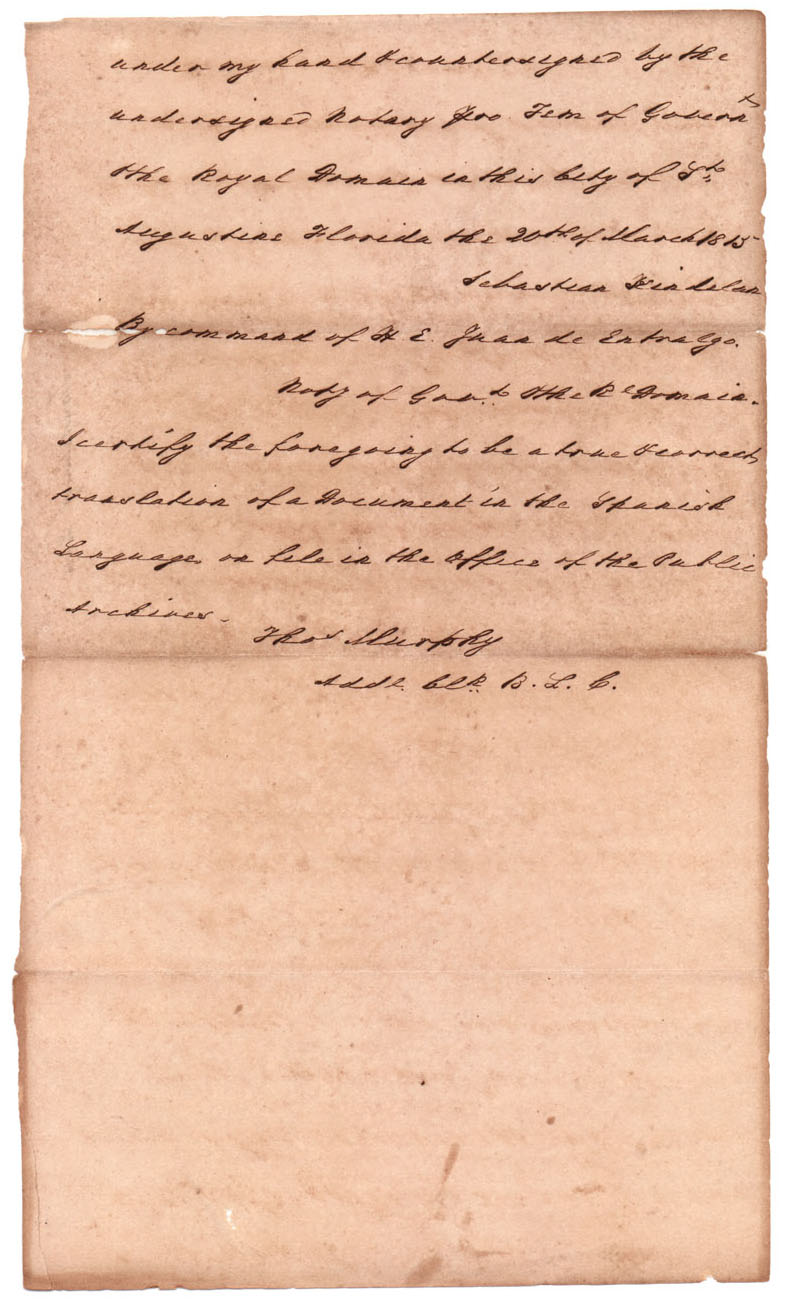 under my hand & countersigned by the
undersigned Notary Pro. Tem of Governt
& the Royal Domain in this City of St.
Augustine Florida the 20th of March 1815
Sebastian Kindelan
By command of H. E. Juan de Entralgo.
Noty of Govt. & the Rl Domain.
I certify the foregoing to be a true & correct
translation of a Document in the Spanish
Language on file in the Office of the Public
Archives.
Thos Murphy
Addl. Clk. B. L. C.